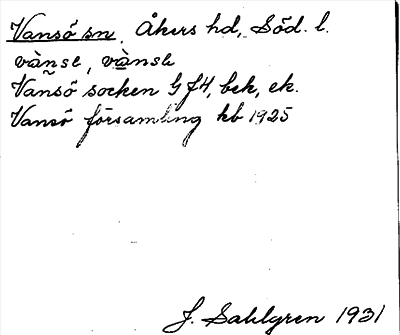 Vansö sn, Åkers hd, Söd. l.
vànsε, vànsε
Vansö socken GJ4, bek, ek.
Vansö församling kb 1925
J. Sahlgren 1931